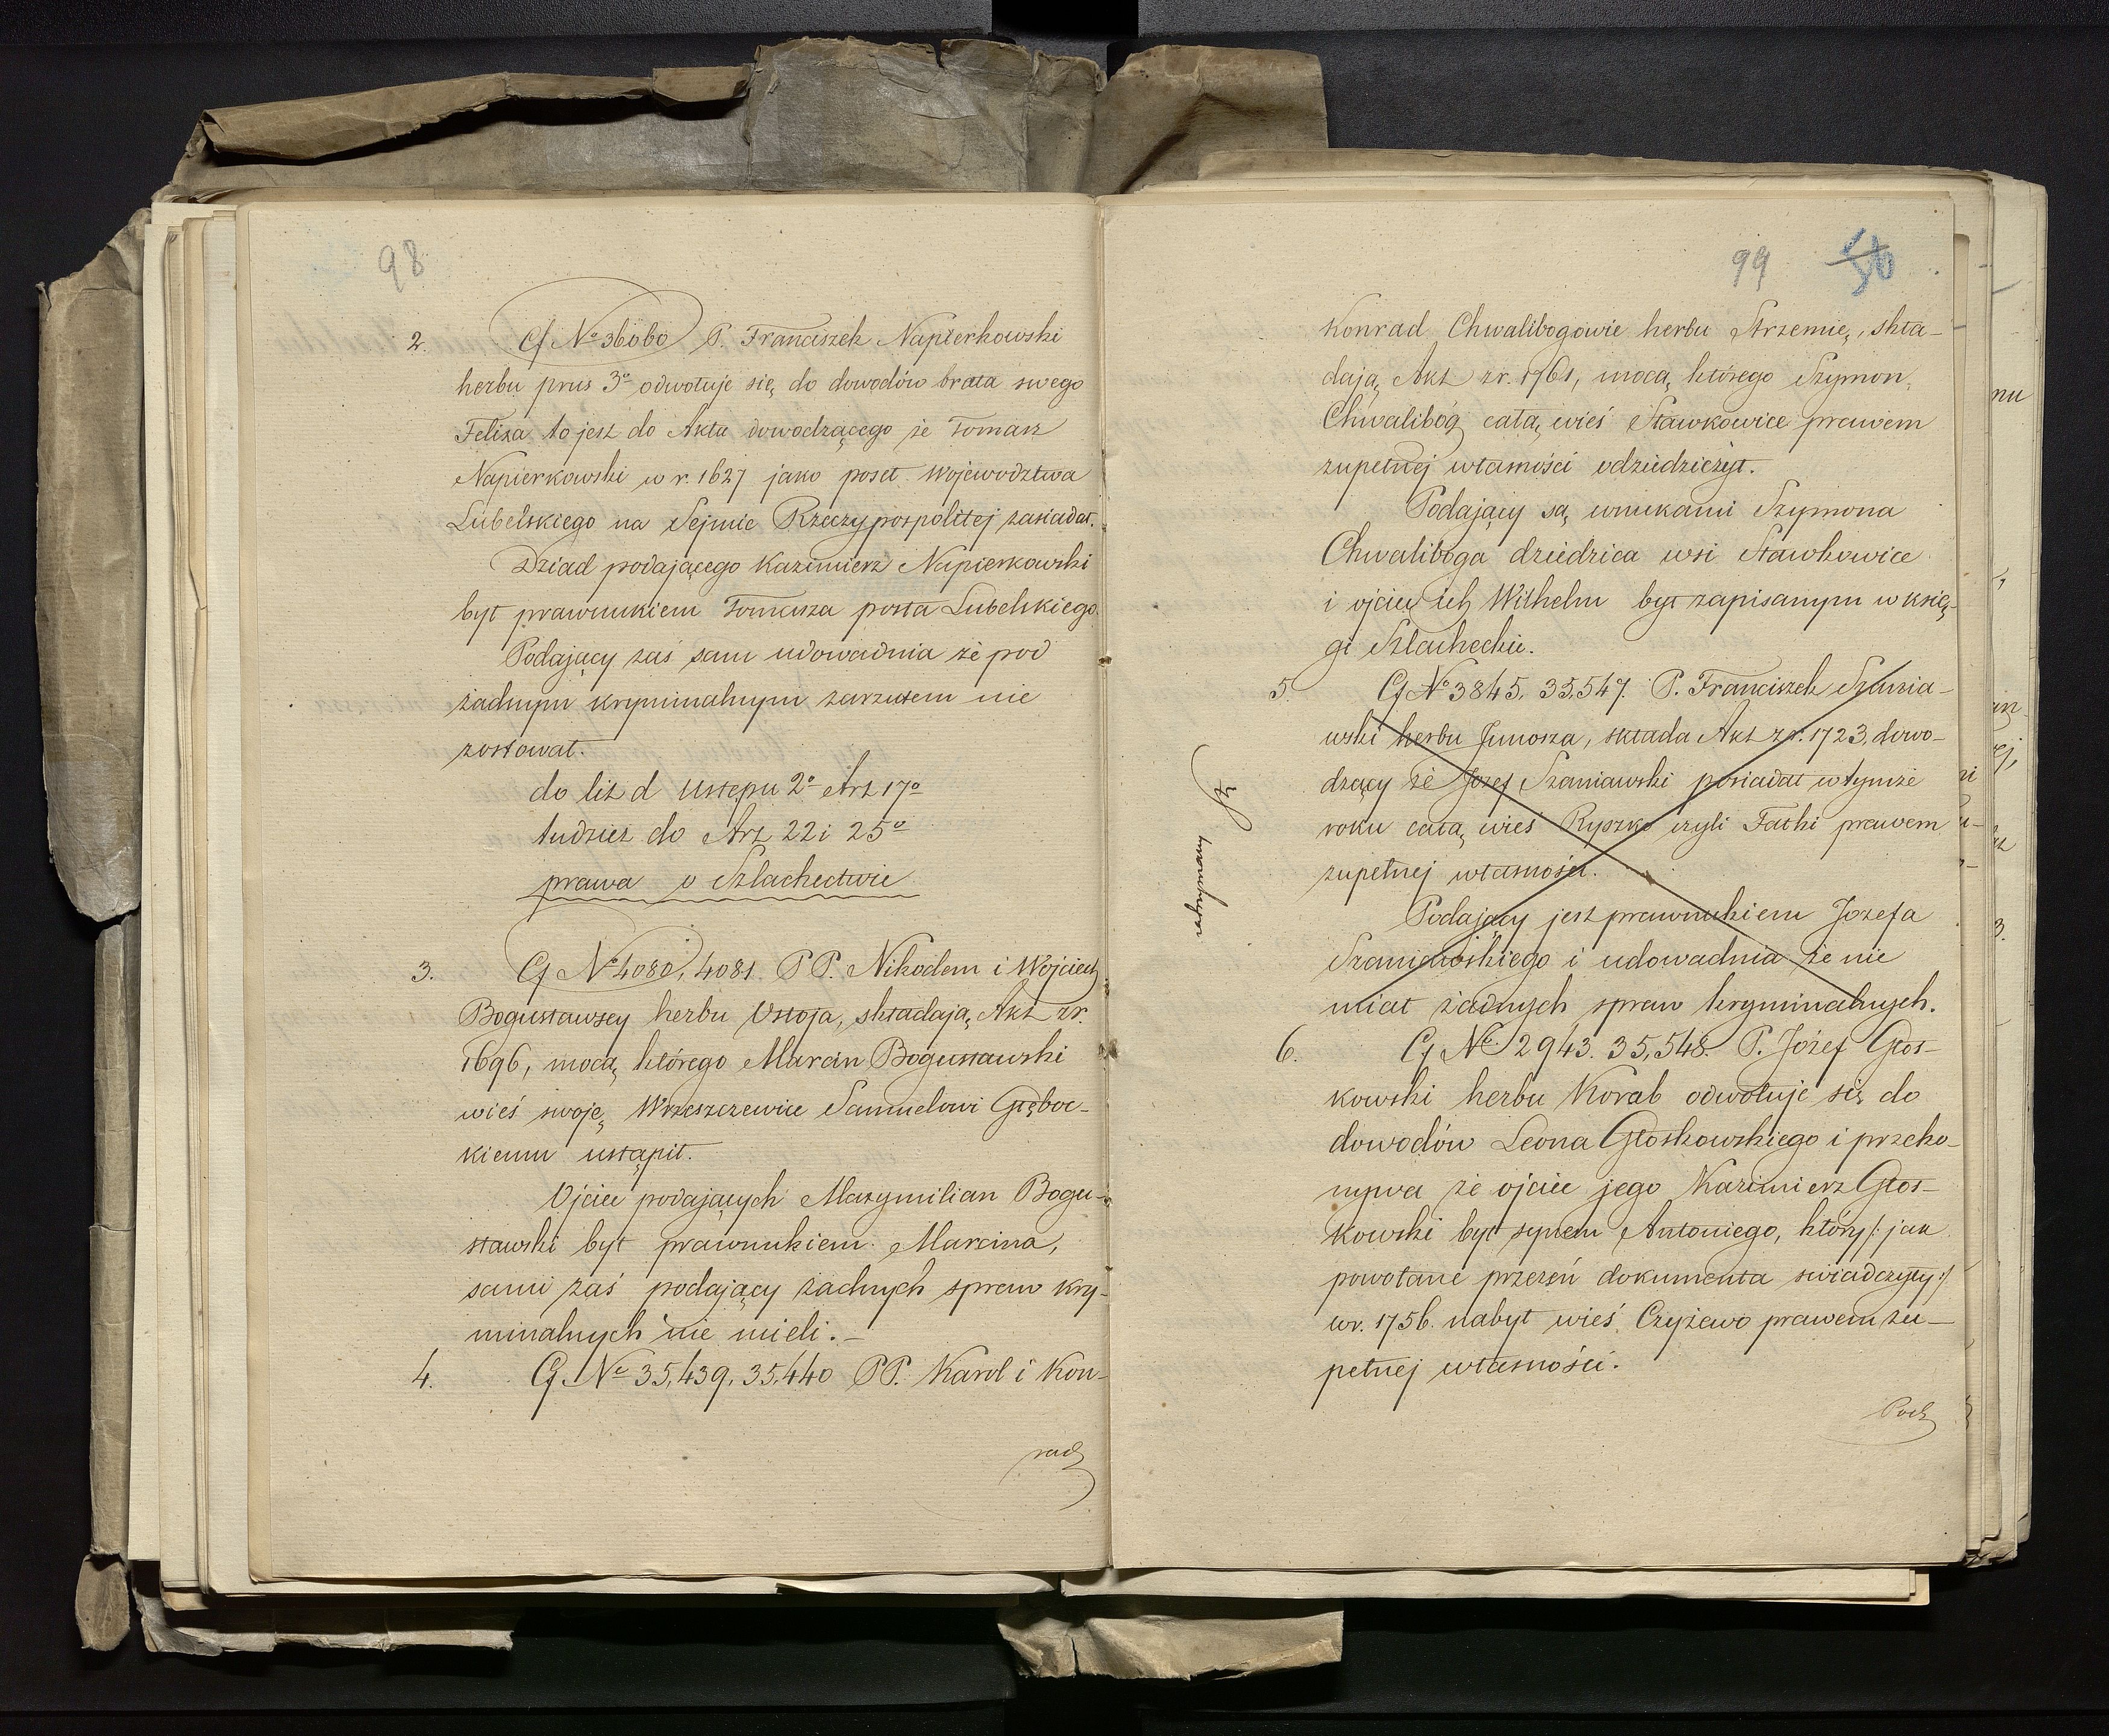 98
2. Cf No 36060 P. Franciszek Napierkowski
herbu prus 3o odwołuje się do dowodów brata swego
Felixa to jest do Aktu dowodzącego że Tomasz
Napierkowski w r. 1627 jako poseł Województwa
Lubelskiego na Sejmie Rzeczypospolitej zasiadał.
Dziad podającego Kazimierz Napierkowski
był prawnukiem Tomasza posła Lubelskiego.
Podający zaś sam udowadnia że pod
żadnym kryminalnym zarzutem nie
zostawał.
do lit d Ustępu 2o Art 17o
tudzież do Art 22 i 25o
prawa o Szlachectwie
3. Cf No 4080, 4081. PP. Nikodem i Wojciech
Bogusławscy herbu Ostoja, składają Akt z r.
1696, mocą którego Marcin Bogusławski
wieś swoję Wrzeszczewice Samuelowi Głęboc-
kiemu ustąpił.
Ojciec podających Maxymilian Bogu-
sławski był prawnukiem Marcina,
sami zaś podający żadnych spraw kry-
minalnych nie mieli. -
4. Cf No 35,439, 35,440 PP. Karol i Kon-
rad
99 50
Konrad Chwalibogowie herbu Strzemię, skła-
dają Akt z r. 1761, mocą którego Szymon
Chwalibóg całą wieś Sławkowice prawem
zupełnej własności odziedziczył.
Podający są wnukami Szymona
Chwaliboga dziedzica wsi Sławkowice
i ojciec ich Wilhelm był zapisanym w księ-
gi Szlacheckie.
5. Cf No 3845, 35,547. P. Franciszek Szania-
wski herbu Junosza, składa Akt z r. 1723, dowo-
dzący że Jozef Szaniawski posiadał w tymże
roku całą wieś Ryszko czyli Fatki prawem
zupełnej własności.
Podający jest prawnukiem Jozefa
Szaniawskiego i udowadnia że nie
miał żadnych spraw kryminalnych.
zatrzymany
6. Cf No 2943. 35,548. P. Józef Głos-
kowski herbu Korab odwołuje się do
dowodów Leona Głoskowskiego i przeko-
nywa że ojciec jego Kazimierz Głos-
kowski był synem Antoniego, który /: jak
powołane przezeń dokumenta świadczyły :/
w r. 1756. nabył wieś Czyżewo prawem zu-
pełnej własności.
Pod